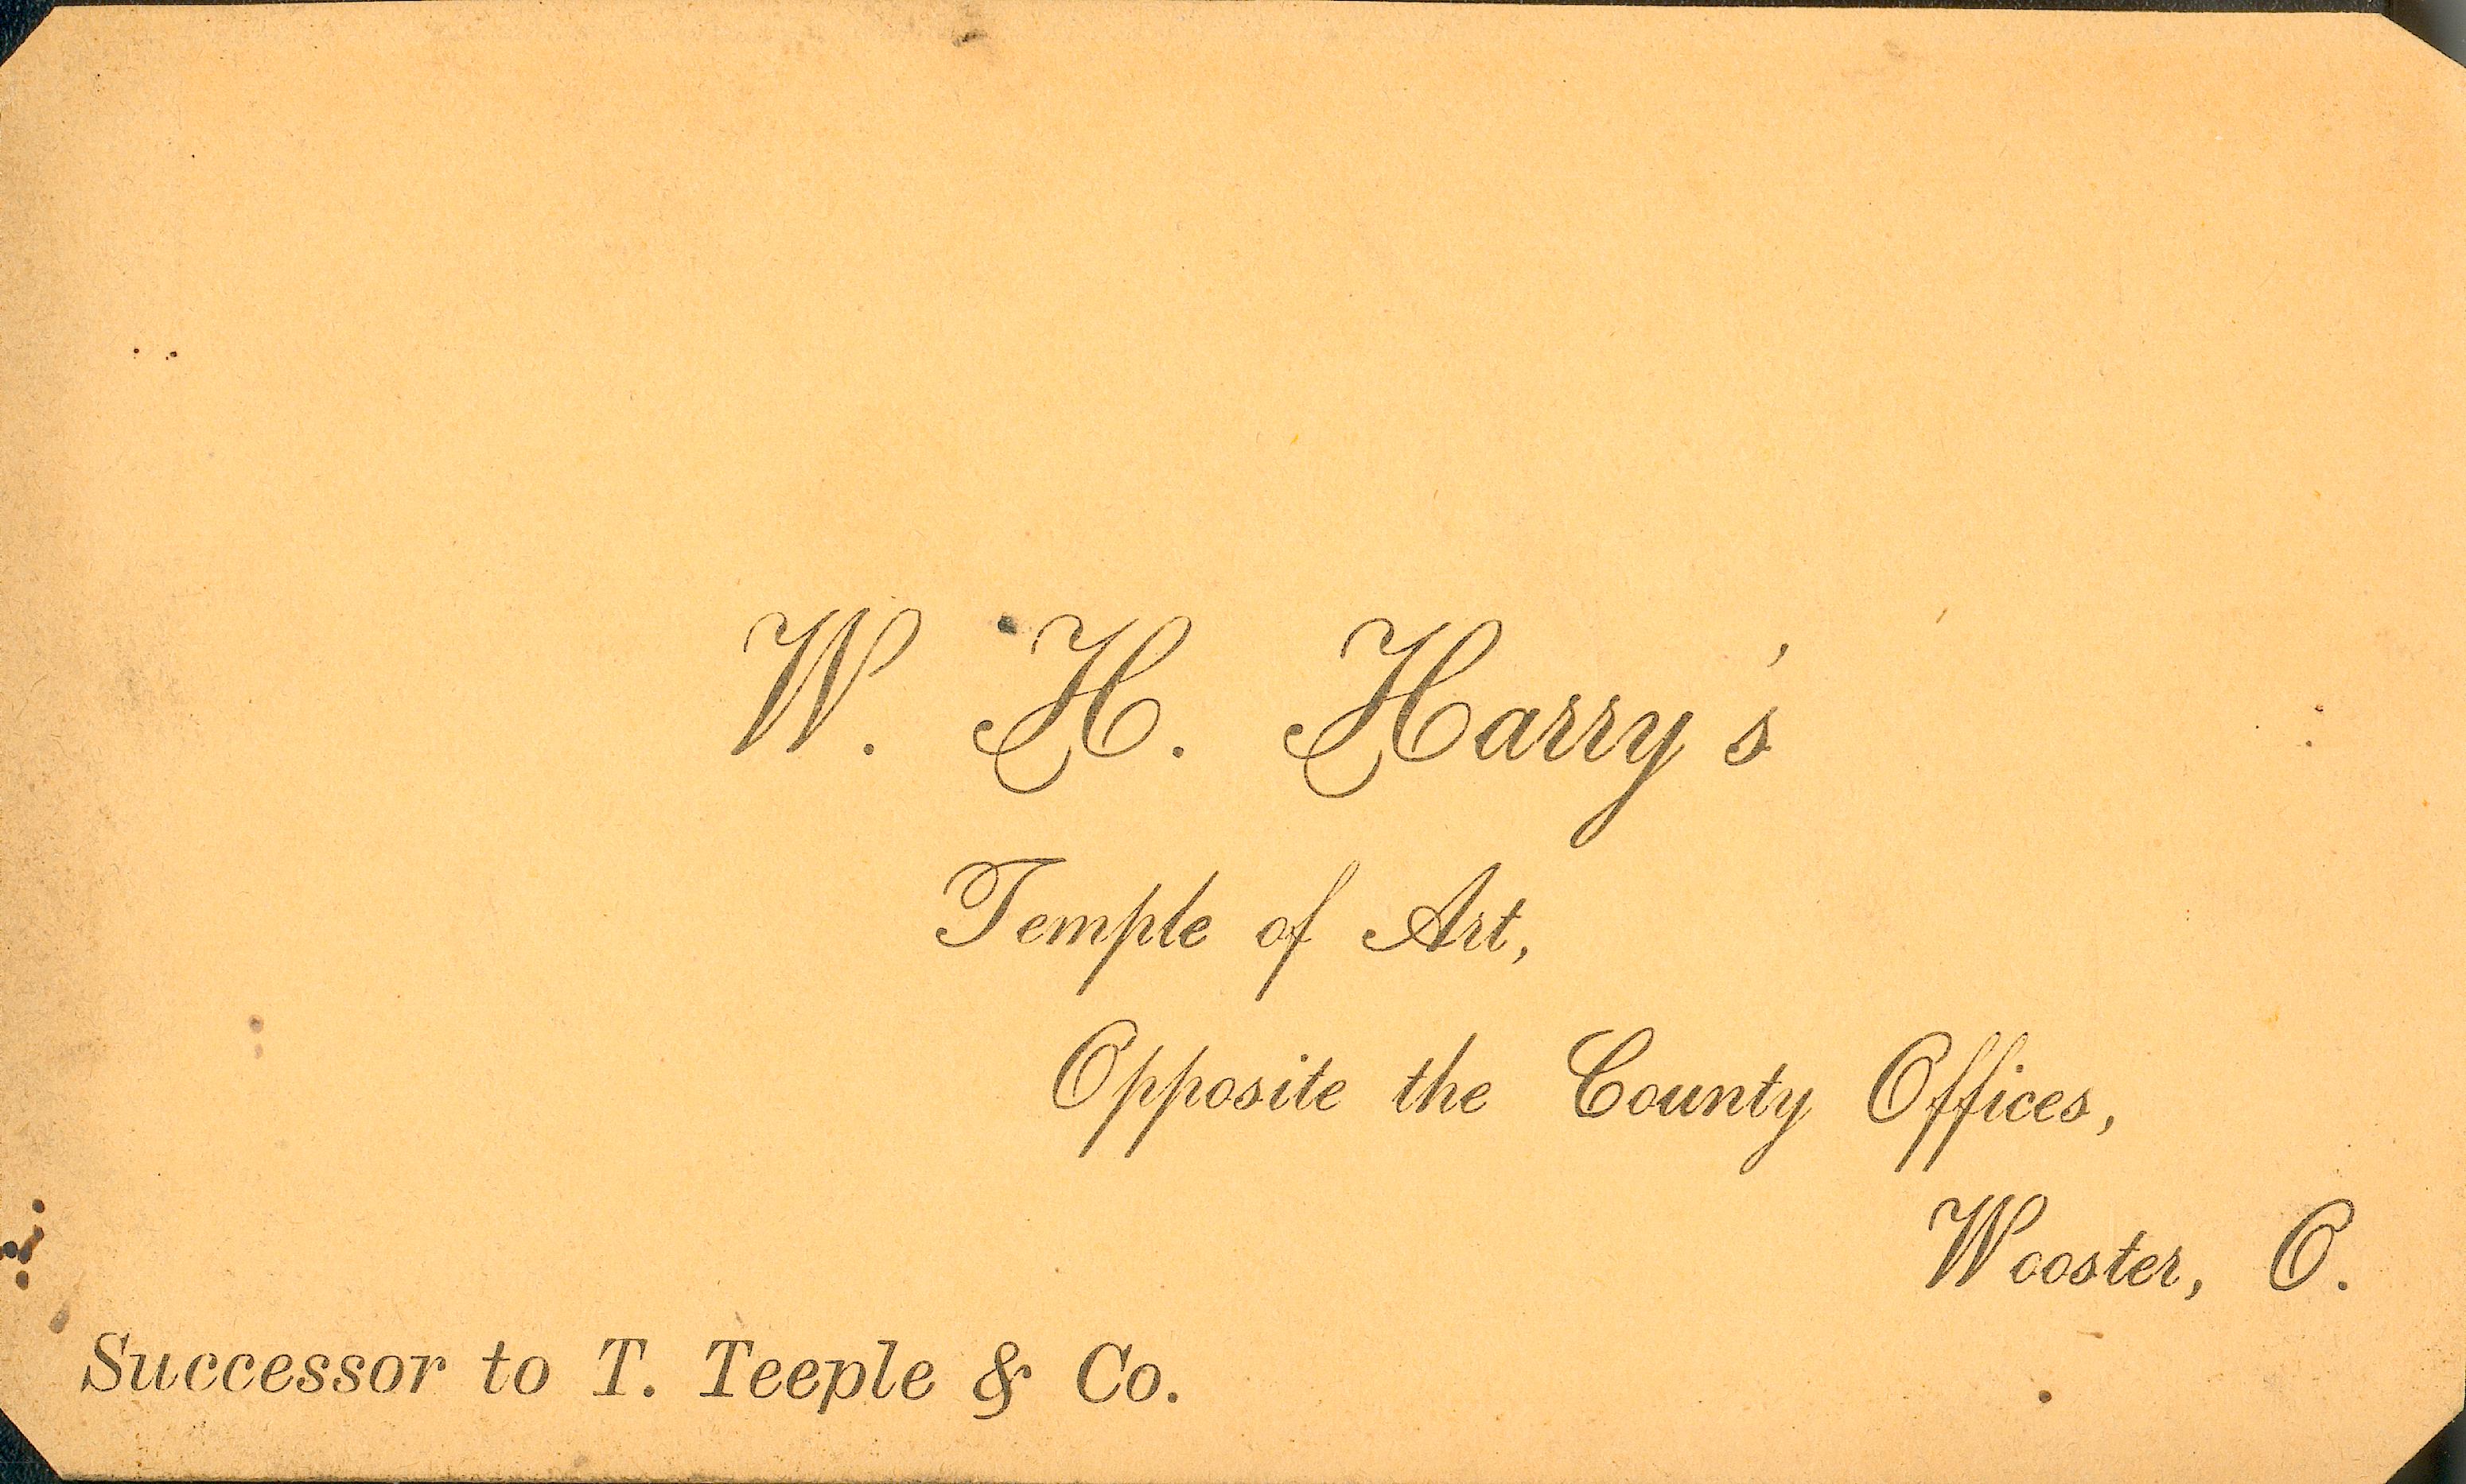 W. H. Harry's
Temple of Art,
Opposite the County Offices,
Wooster, O.
Successor to T. Teeple & Co.